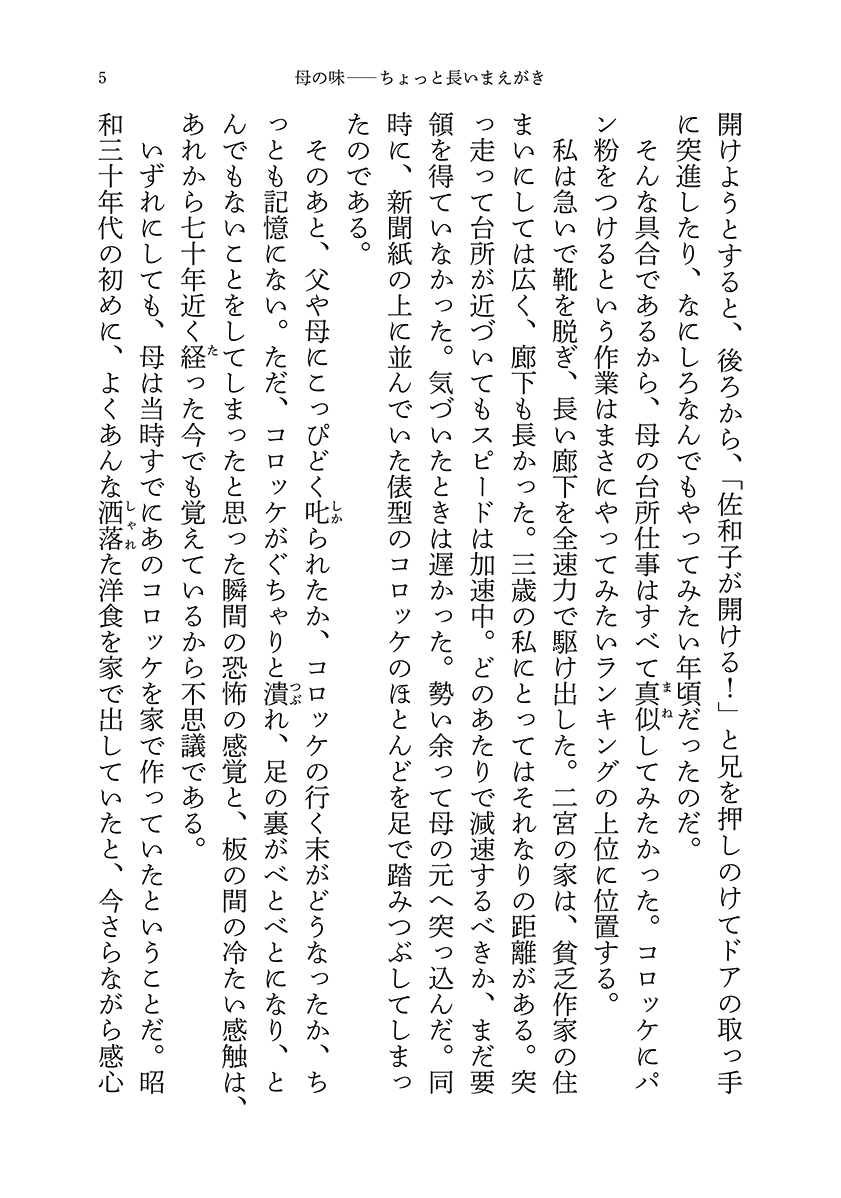 5
母の味——ちょっと長いまえがき
開けようとすると、後ろから、「佐和子が開ける！」と兄を押しのけてドアの取っ手
に突進したり、なにしろなんでもやってみたい年頃だったのだ。
そんな具合であるから、母の台所仕事はすべて真似してみたかった。コロッケにパ
ン粉をつけるという作業はまさにやってみたいランキングの上位に位置する。
私は急いで靴を脱ぎ、長い廊下を全速力で駆け出した。二宮の家は、貧乏作家の住
まいにしては広く、廊下も長かった。三歳の私にとってはそれなりの距離がある。突
っ走って台所が近づいてもスピードは加速中。どのあたりで減速するべきか、まだ要
領を得ていなかった。気づいたときは遅かった。勢い余って母の元へ突っ込んだ。同
時に、新聞紙の上に並んでいた俵型のコロッケのほとんどを足で踏みつぶしてしまっ
たのである。
そのあと、父や母にこっぴどく叱られたか、コロッケの行く末がどうなったか、ち
っとも記憶にない。ただ、コロッケがぐちゃりと潰れ、足の裏がべとべとになり、と
んでもないことをしてしまったと思った瞬間の恐怖の感覚と、板の間の冷たい感触は、
あれから七十年近く経った今でも覚えているから不思議である。
いずれにしても、母は当時すでにあのコロッケを家で作っていたということだ。昭
和三十年代の初めに、よくあんな洒落た洋食を家で出していたと、今さらながら感心
まね
しか
つぶ
た
しゃれ